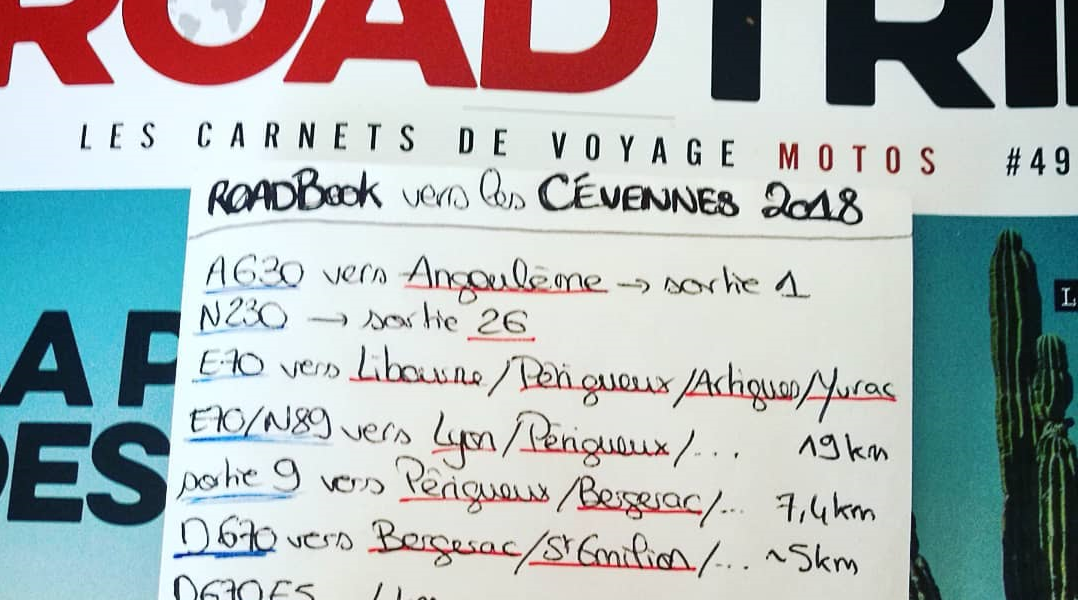 ROAD TRI
LES CARNETS DE VOYAGE MOTOS #49
ROADBook vers les CÉVENNES 2018
A630 vers Angoulême → sortie 1
N230 → sortie 26
E70 vers Libourne/Périgueux/Artigues/Yvrac
E70/N89 vers Lyon/Périgueux/... 19km
sortie 9 vers Périgueux/Bergerac/... 7,4km
D670 vers Bergerac/St Emilion/... ~5km
D670E5
A P
DES
L